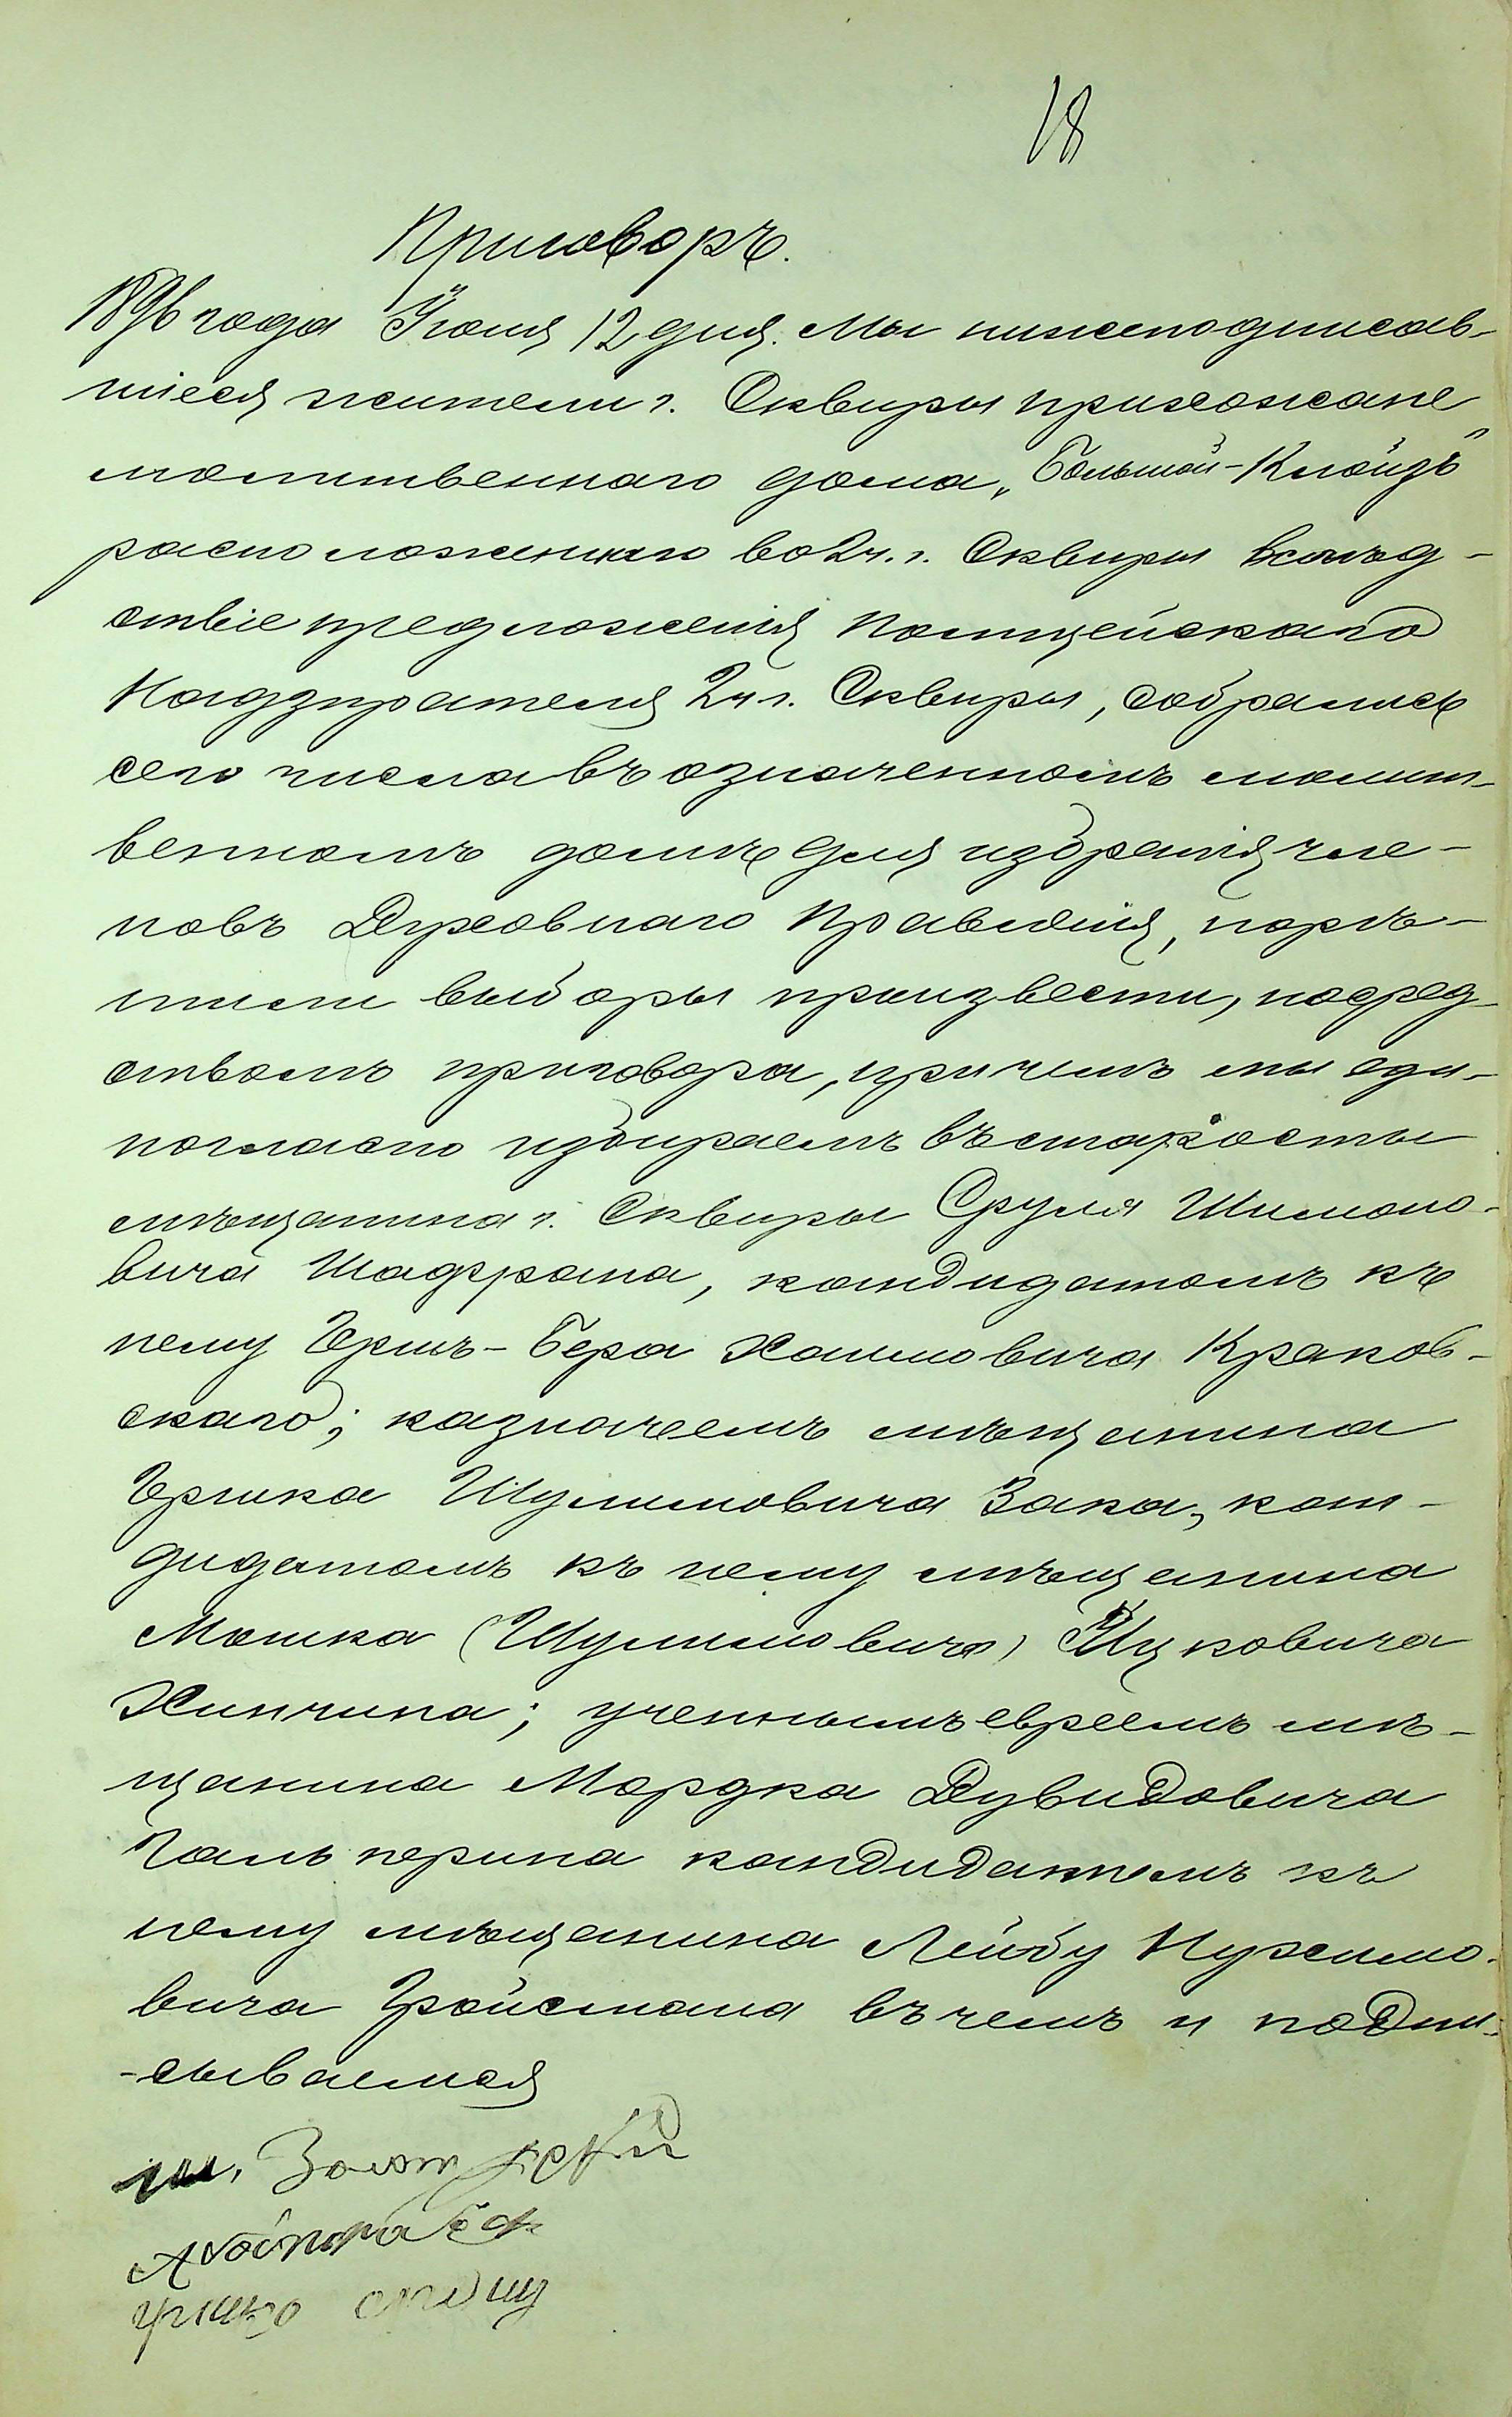 18
Приговоръ.
1896 года Іюня 12 дня. Мы нижеподписав-
шіеся жители г. Сквиры прихожане
молитвеннаго дома „Большой-Клойзъ"
расположеннаго во 2 ч. г. Сквиры вслѣд-
ствіе предложенія Полицейскаго
Надзирателя 2 ч г. Сквиры, собрались
сего числа въ означенномъ молит-
венномъ домѣ для избранія чле-
новъ Духовнаго Правленія, порѣ-
шили выборы произвести, посред-
ствомъ приговора, причемъ мы еди-
ногласно избираемъ въ старосты
мѣщанина г. Сквиры Сруля Шимоно-
вича Шафрана, кандидатомъ къ
нему Герш-Бера Хаимовича Краков-
скаго; казначеемъ мѣщанина
Гершка Шулимовича Зака, кан-
дидатомъ къ нему мѣщанина
Мошка (Шулимовича) Ицковича
Хинчина; ученнымъ евреемъ мѣ-
щанина Мордка Дувидовича
Гальперина кандидатомъ къ
нему мѣщанина Лейбу Нухимо-
вича Гройсмана въ чемъ и подпи-
-сываемся